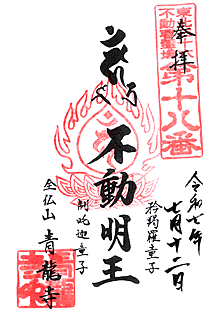 奉拝
東北三十六
不動尊霊場
第十八番
令和七年
七月十二日
矜羯羅童子
不動明王
制吒迦童子
全仏山 青龍寺